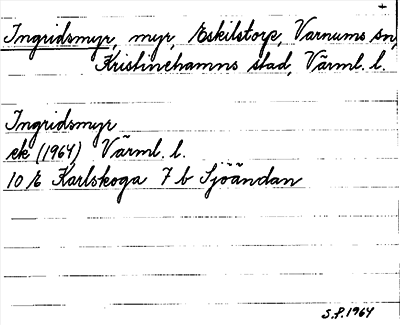 Ingridsmyr, myr, Eskilstorp, Varnums sn,
Kristinehamns stad, Värml. l.
Ingridsmyr
ek (1964) Värml. l.
10 E Karlskoga 7 b Sjöändan
S.P. 1964